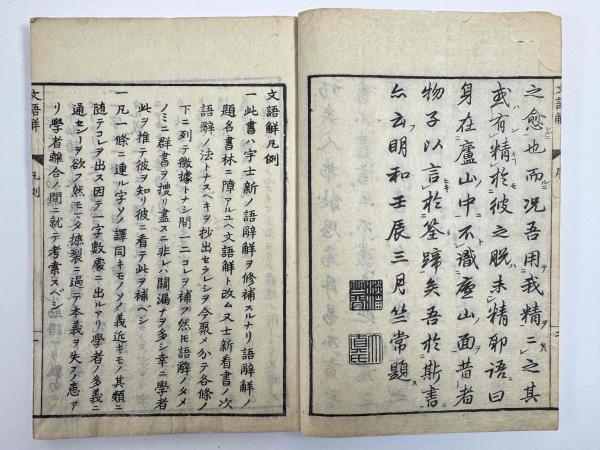 之愈也而況吾用我精ニ之其
或有精於彼之既未精耶語曰
身在廬山中不識廬山面昔者
物子以言於筌蹄矣吾於斯書
亦云明和壬辰三月竺常題
文語解凡例
一此書ハ宇士新ノ語辭解ヲ修補スルナリ語辭解ノ
題名書林ニ障アルユヘ文語解ト改ム又士新看書ノ次
語辭ノ法トナスヘキヲ抄出セラレシヲ今聚メ分テ各條ノ
下ニ列テ徴據トナシ間ニコレヲ補フ然モ語辭ノタメ
ノミニ群書ヲ捜リ盡スニ非レハ闕漏ナヲ多シ幸ニ學者
此ヲ推テ彼ヲ知リ彼ニ看テ此ヲ補ベシ
一凡一條ニ連ル字ソノ譯同キモノソノ義近キモノ其類ニ
随テコレヲ出ス因テ一字數處ニ出ルアリ學者ノ多義ニ
通センヿヲ欲ソ然モ一タヒ據裂ニ過テ本義ヲ失フノ患ア
リ學者離合ノ間ニ就テ考索スベシ
文語解
凡例